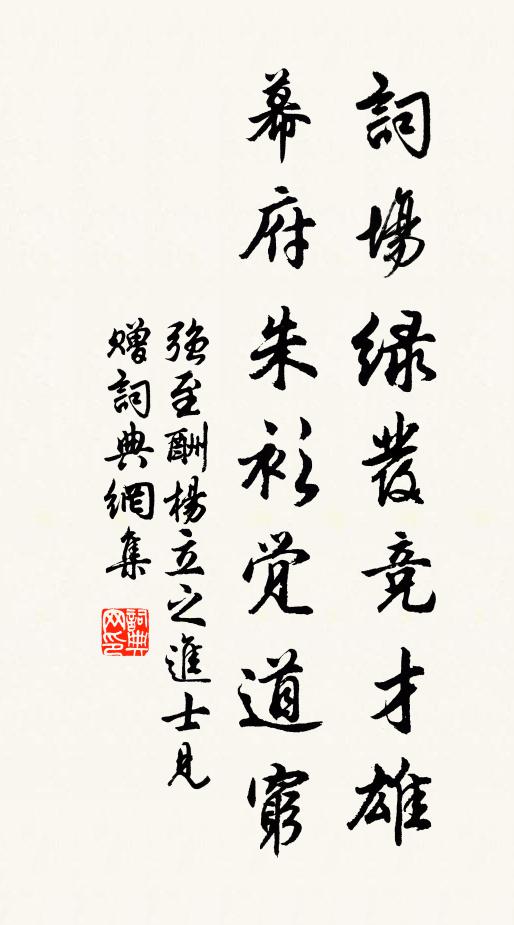 詞場緑發竞才雄
幕府朱衫覚道窮
強至酬楊立之進士見
贈詞典網集
詞典网印